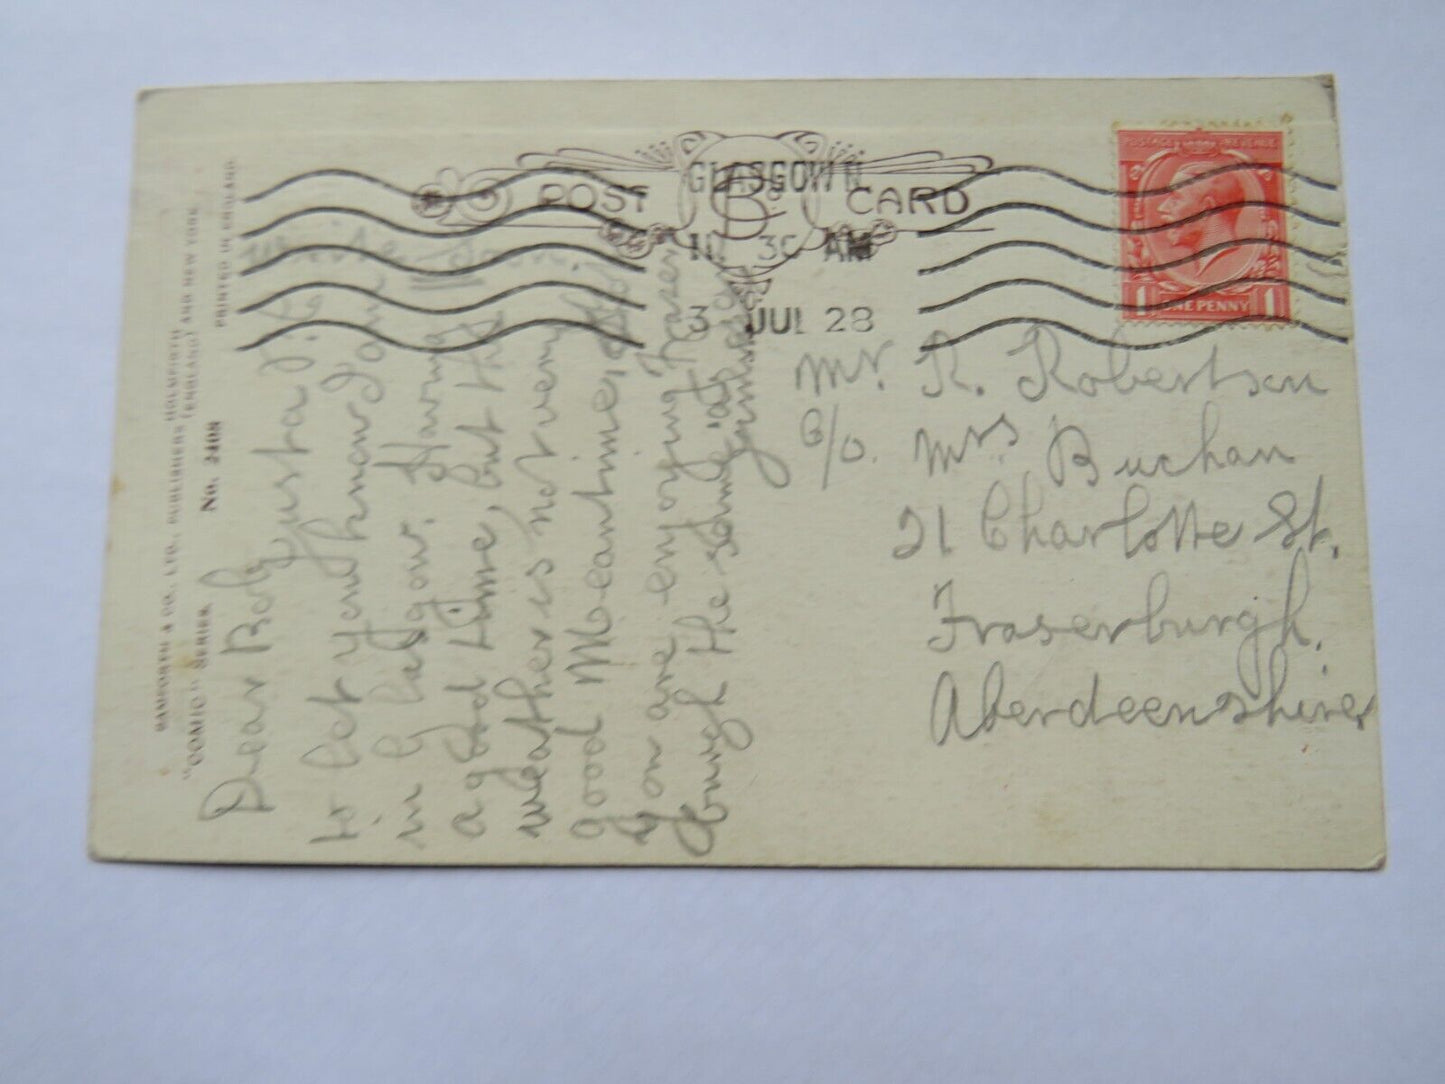 POST CARD
GLASGOW
10 30 AM
3 JUL 28
POSTAGE REVENUE
1 ONE PENNY 1
BAMFORTH & CO., LTD., PUBLISHERS HOLMFIRTH (ENGLAND) AND NEW YORK
"COMIC" SERIES. No. 2408
PRINTED IN ENGLAND
Dear Bob, Just a P.C.
to let you know I am
in Glasgow. Having
a good time, but the
weather is not very
good Meantime,
you are enjoying Fraser
burgh the same at
Mr. R. Robertson
C/o. Mrs Buchan
21 Charlotte St.
Fraserburgh.
Aberdeenshire